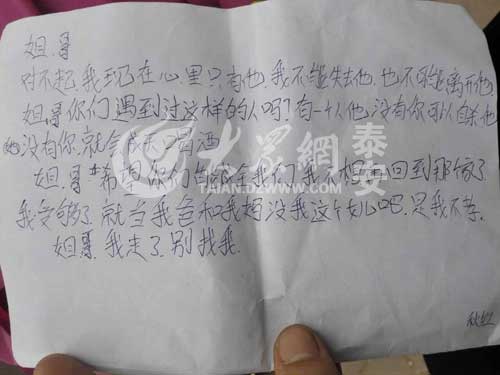 姐.哥
对不起.我现在心里只有他.我不能失去他.也不可能离开他
姐哥你们遇到过这样的人吗?有一个人他.没有你可以自杀他
没有你.就会成天喝酒
姐.哥希望你们成全我们.我不想再回到那傢了
我受够了.就当我爸和我妈没我这个女儿吧.是我不孝.
姐哥.我走了.别找我.
秋红
大众网 泰安
TAIAN.DZWWW.COM